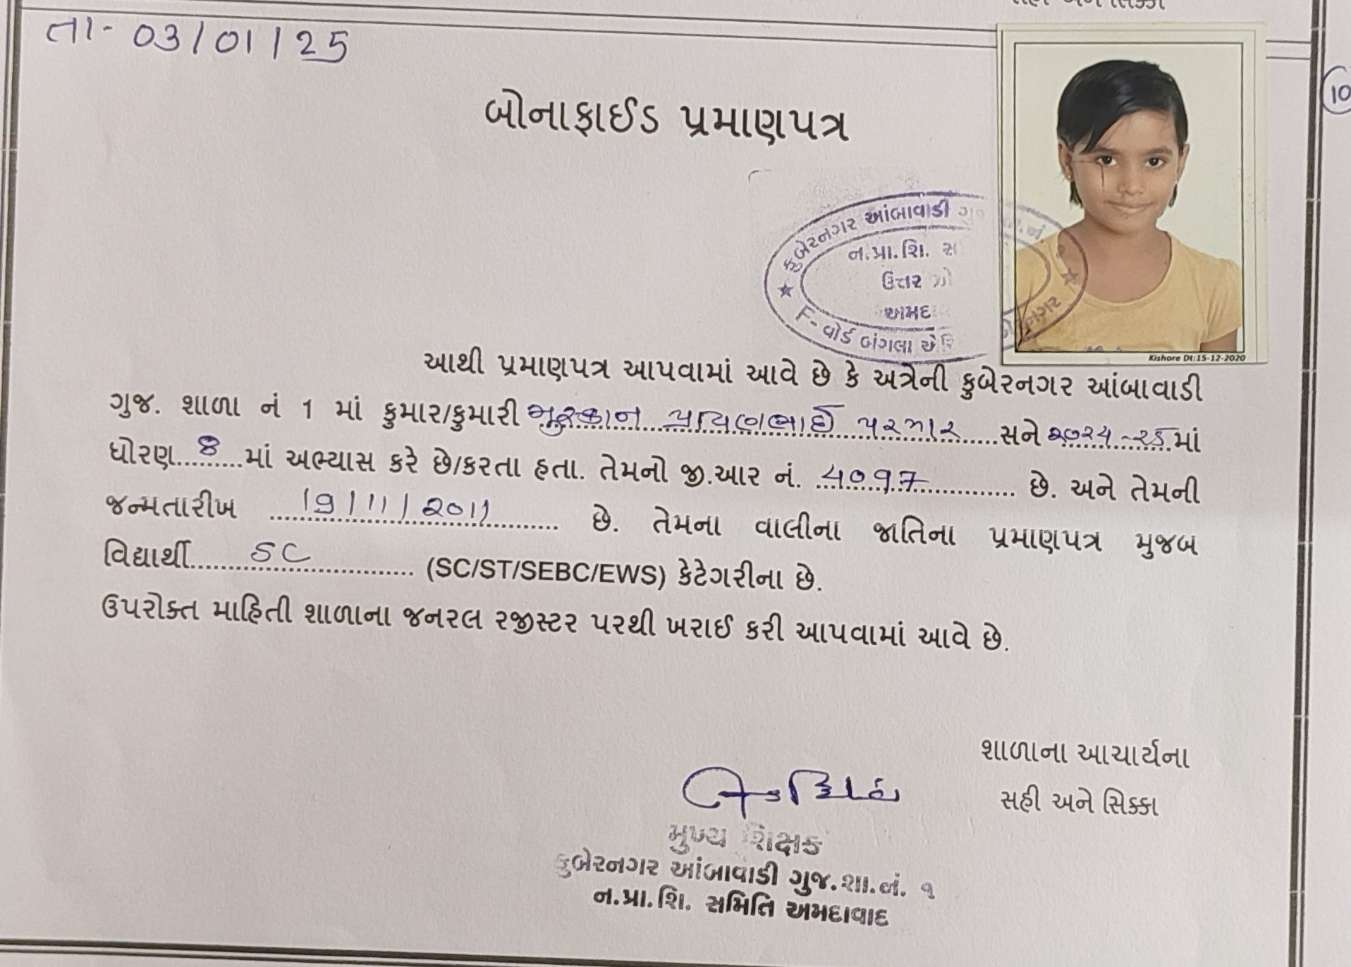 તા- 03/01/25
10
બોનાફાઈડ પ્રમાણપત્ર
કુબેરનગર આંબાવાડી
ન.પ્રા.શિ.
ઉત્તર
અમદ
F- વોર્ડ બંગલા એરિ
Kishore Dt:15-12-2020
આથી પ્રમાણપત્ર આપવામાં આવે છે કે અત્રેની કુબેરનગર આંબાવાડી
ગુજ. શાળા નં 1 માં કુમાર/કુમારી મુસ્કાન પ્રવિણભાઈ પરમાર સને ૨૦૨૪-૨૫ માં
ધોરણ 8 માં અભ્યાસ કરે છે/કરતા હતા. તેમનો જી.આર નં. 4097 છે. અને તેમની
જન્મતારીખ 19/11/2011 છે. તેમના વાલીના જાતિના પ્રમાણપત્ર મુજબ
વિદ્યાર્થી SC (SC/ST/SEBC/EWS) કેટેગરીના છે.
ઉપરોક્ત માહિતી શાળાના જનરલ રજીસ્ટર પરથી ખરાઈ કરી આપવામાં આવે છે.
શાળાના આચાર્યના
સહી અને સિક્કા
મુખ્ય શિક્ષક
કુબેરનગર આંબાવાડી ગુજ.શા.નં. ૧
ન.પ્રા.શિ. સમિતિ અમદાવાદ